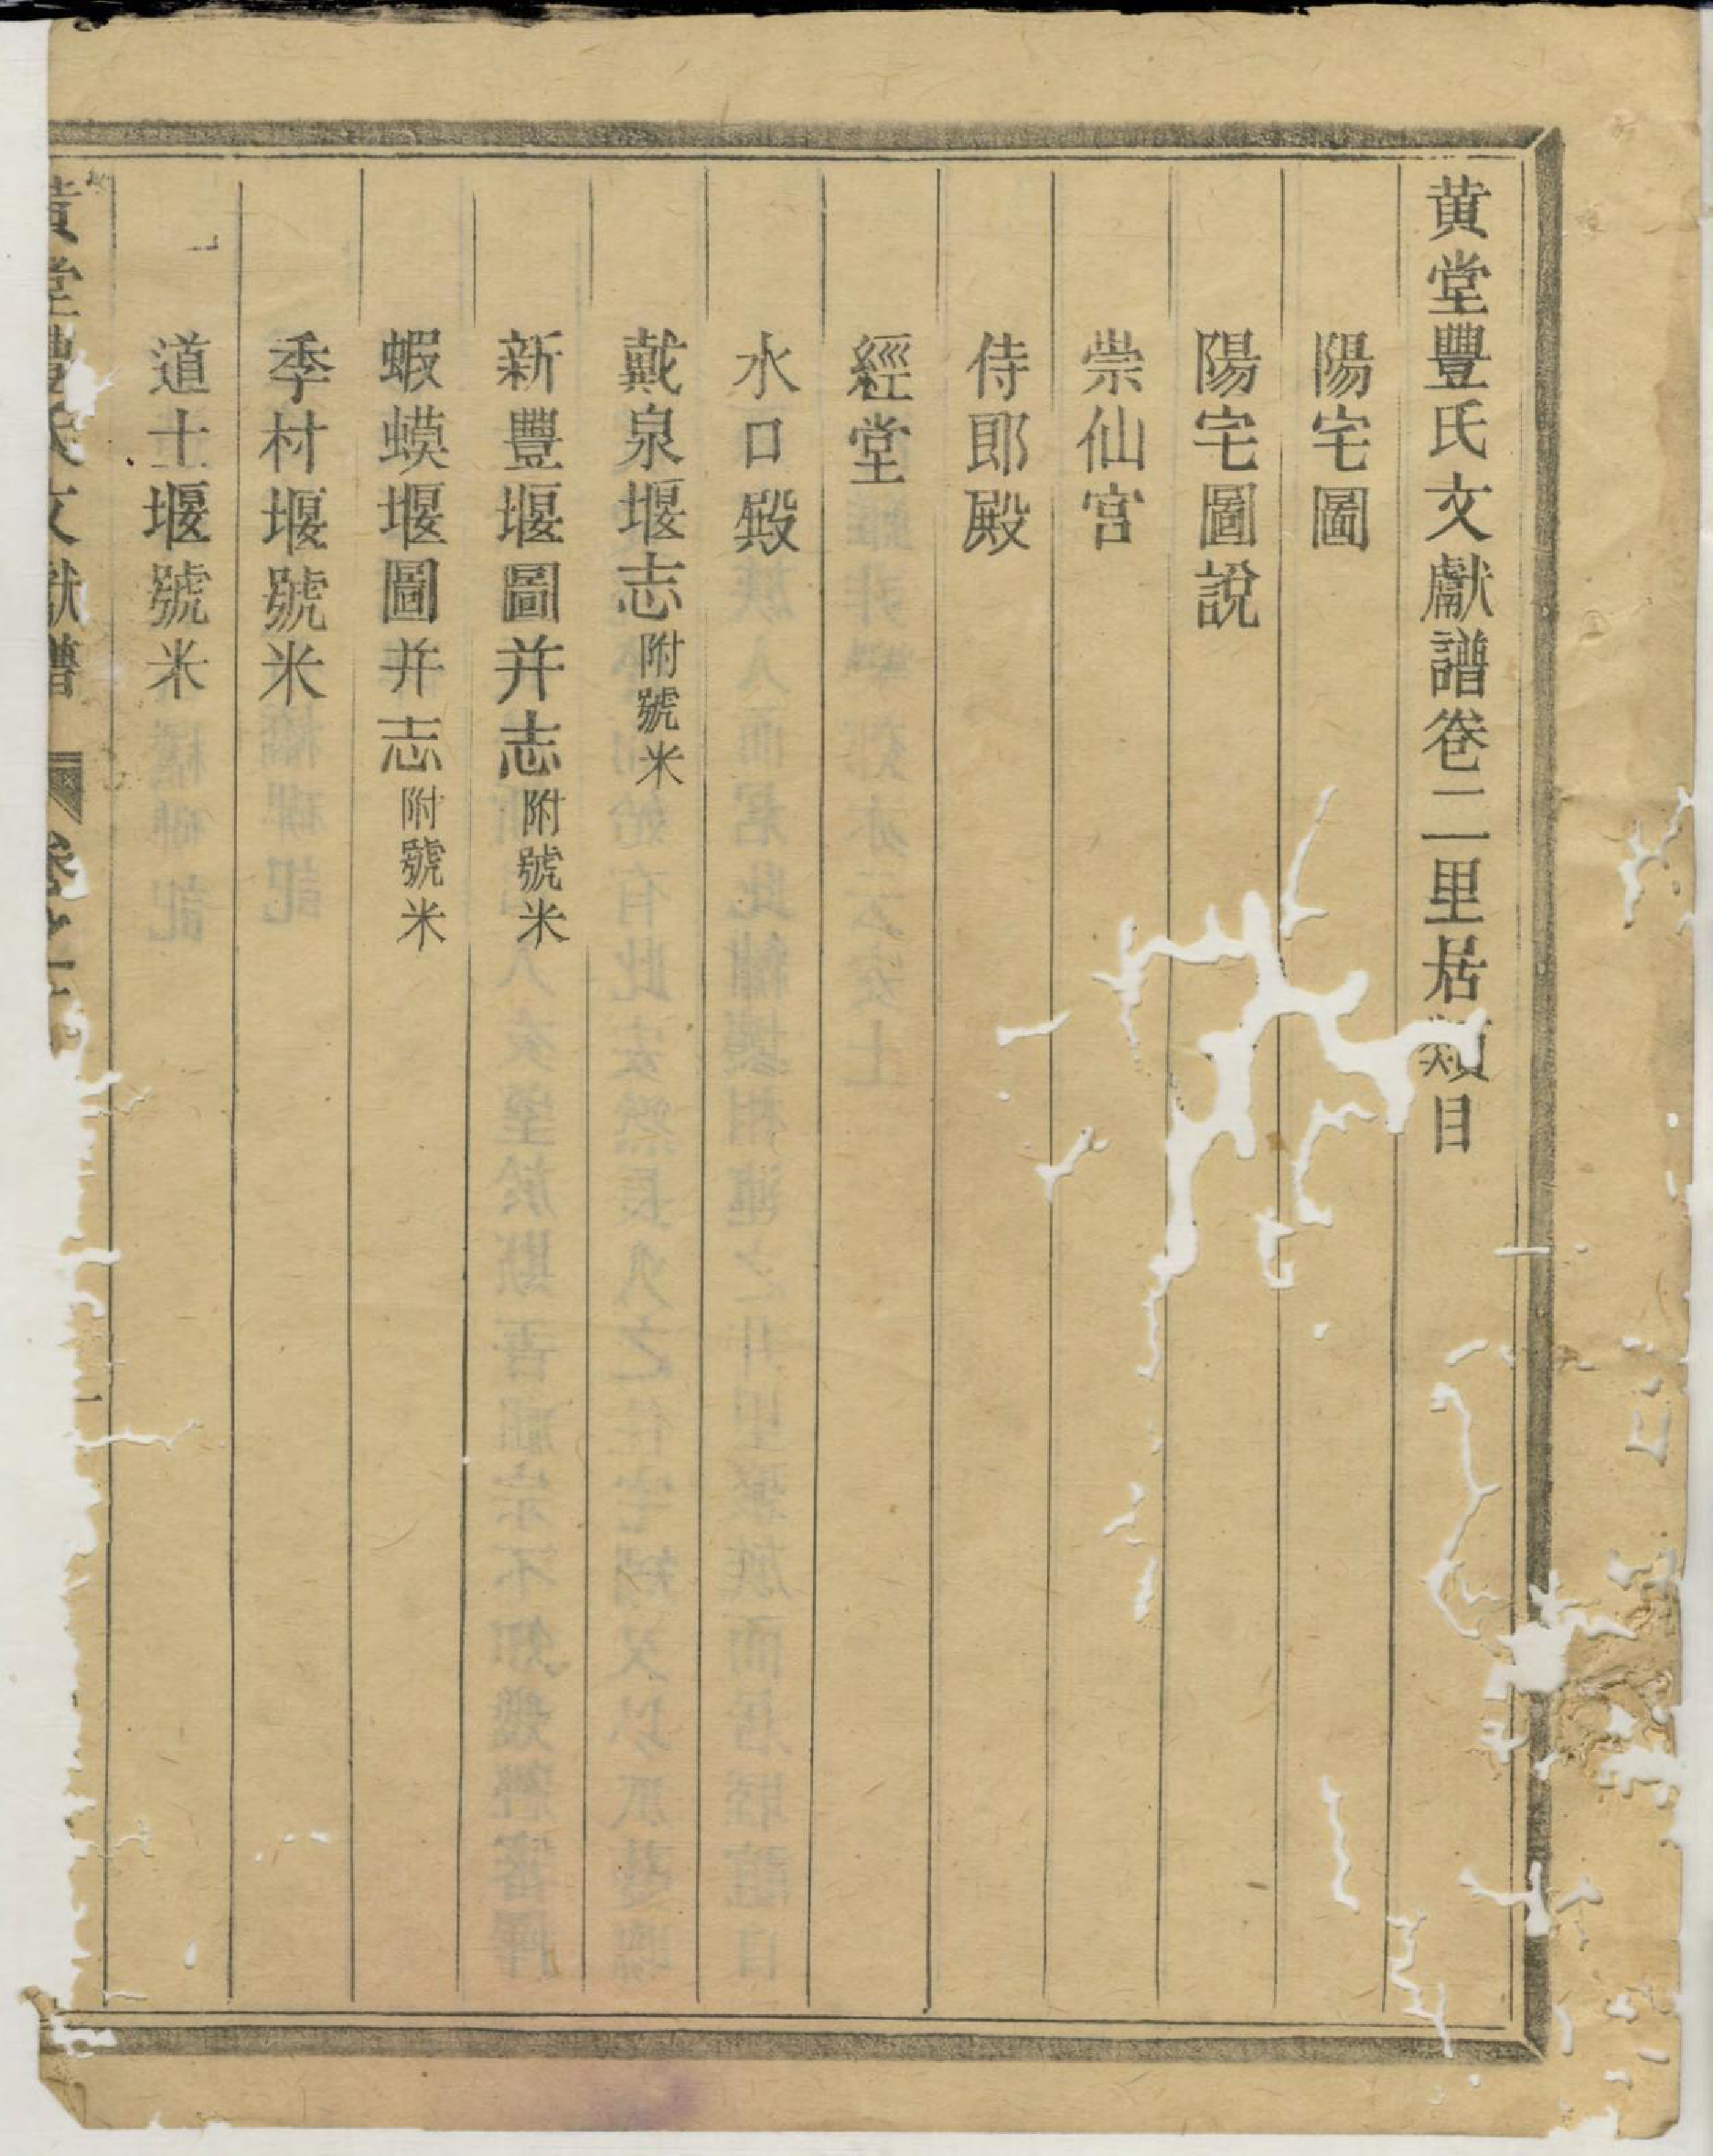 黄堂豐氏文獻譜卷二里居類目
陽宅圖
陽宅圖說
崇仙宮
侍郎殿
經堂
水口殿
戴泉堰志附號米
新豐堰圖并志附號米
蝦蟆堰圖并志附號米
季村堰號米
道士堰號米
黄堂豐氏文獻譜 卷之二 一